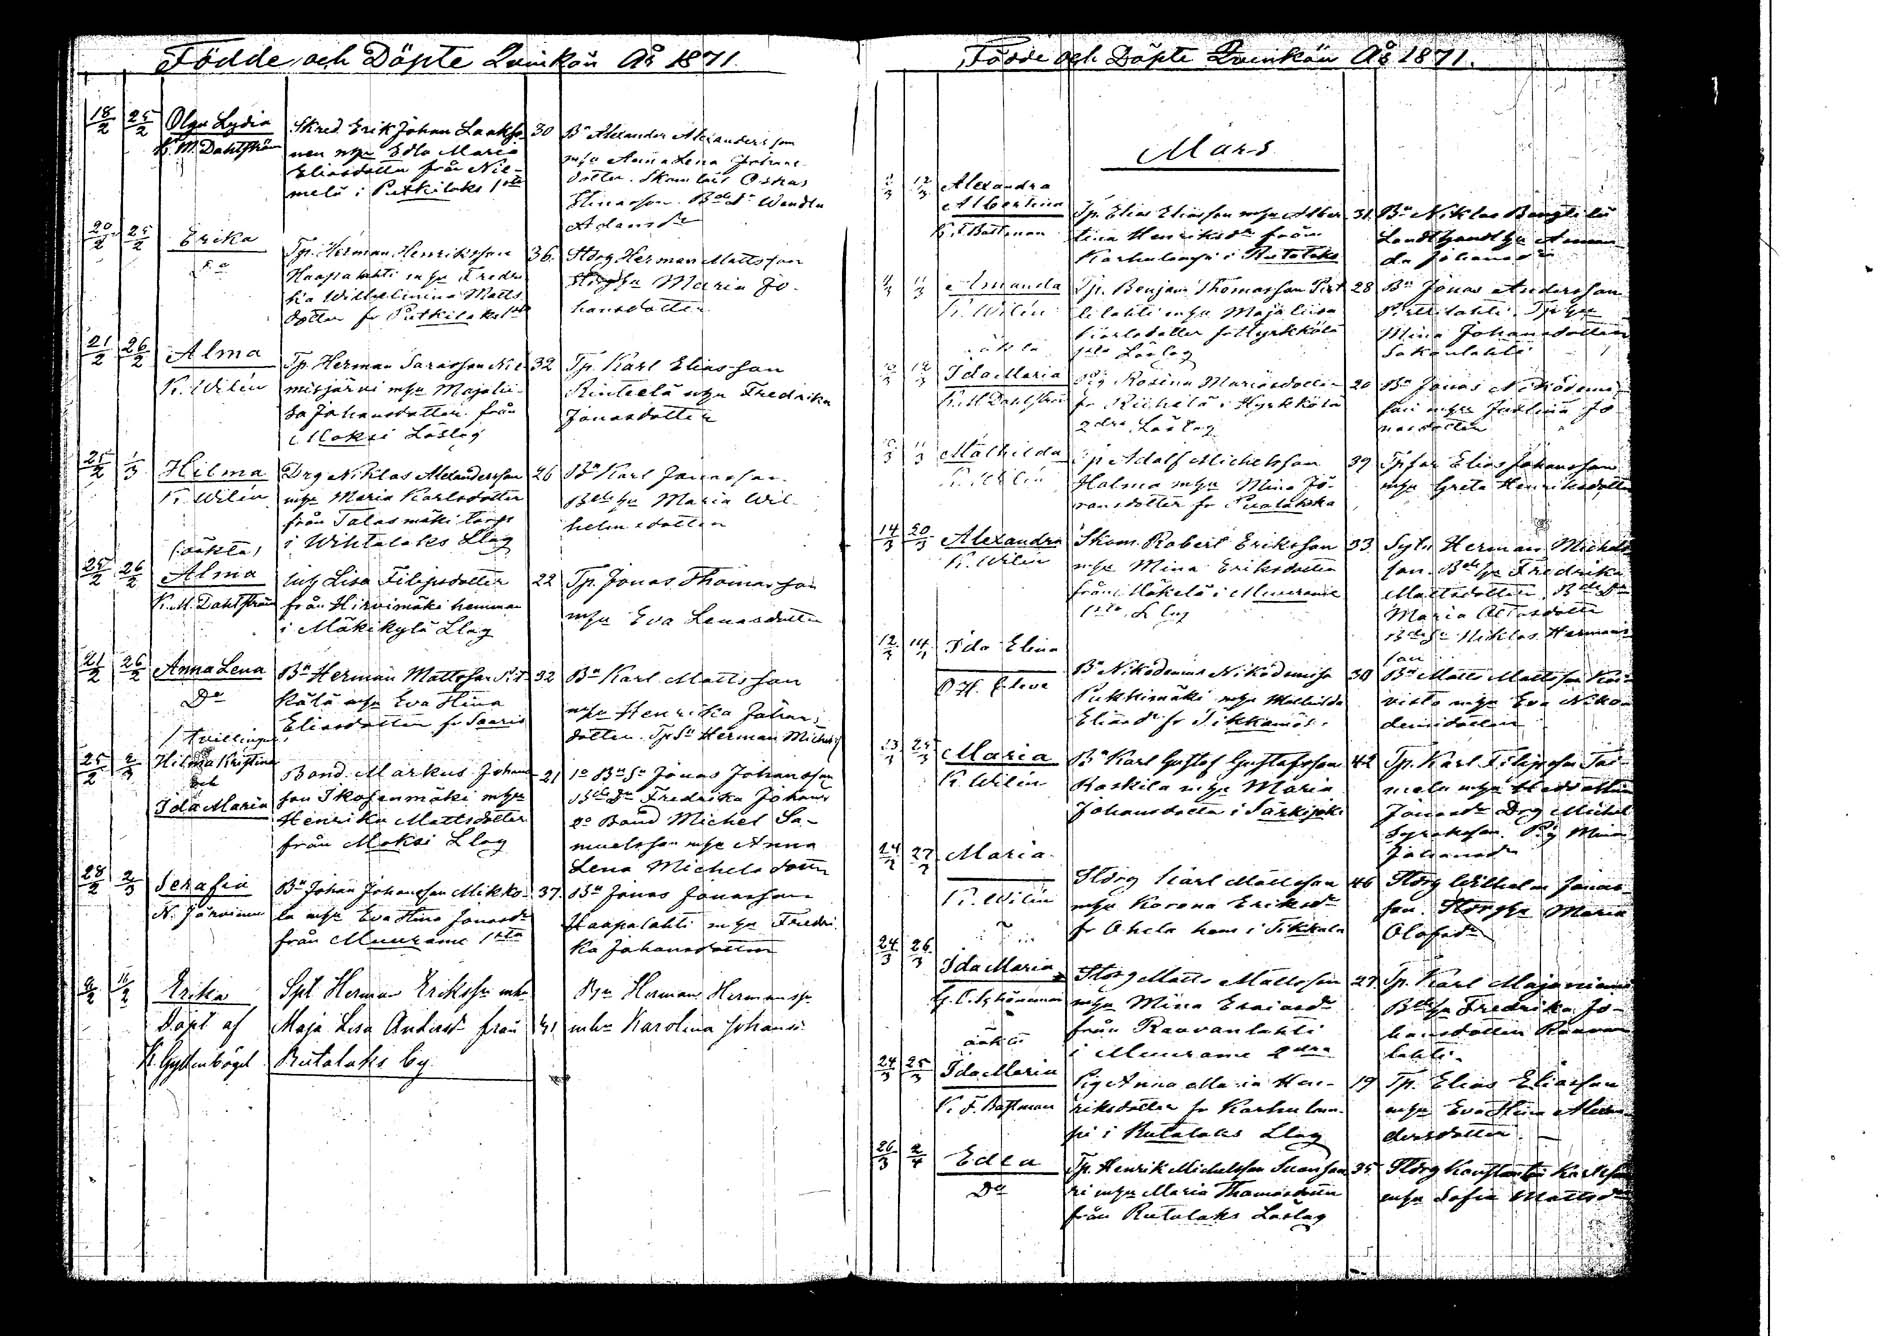 Födde och Döpte Qvinkön År 1871
18/2 25/2 Olga Lydia
K. M. Dahlström
Skred. Erik Johan Laakso-
nen mhu Edla Maria
Eliasdotter från Nie-
melä i Putkilaks 1sta
30
Bn Alexander Alexandersson
mhu Anna Lena Johans-
dotter. Oskar
Bde Dr Wendla
Adamsdr
20/2 25/2 Erika
Do
Tp. Herman Henriksson
Haapalahti mhu Fredri-
ka Wilhelmina Matts-
dotter fr Putkilaks
36.
Stdrg Herman Mattsson
Maria Jo-
hansdotter
21/2 26/2 Alma
K. Wilén
Tp Herman
misjärvi mhu Majalii-
sa Johansdotter från
Moksi Låslag
32
Tp. Karl Eliasson
Rinteelä mhu Fredrika
Jonasdotter
25/2 1/3 Hilma
K. Wilén
Drg Niklas Alexandersson
mhu Maria Karlsdotter
från Talasmäki torp
i Wihtalaks Llag
26
Bn Karl Jonasson
Bdehu Maria Wil-
helmsdotter
(oäkta)
25/2 26/2 Alma
K. M. Dahlström
Inh Lisa Filipsdotter
från Hirvimäki hemman
i Mäkikylä Llag
22
Tp. Jonas Thomasson
mhu Eva Lenasdotter
21/2 26/2 Anna Lena
Do
Bn Herman Mattsson Pit-
kälä mhu Eva Stina
Eliasdotter fr Saaris
32
Bn Karl Mattsson
mhu Henrika Johans-
dotter. Tp Sn Herman Michelss
/tvillingar/
25/2 2/3 Hilma Kristina
och
Ida Maria
Bond. Markus Johans-
son Ikosenmäki mhu
Henrika Mattsdotter
från Moksi Llag
21
1o Bn Sn Jonas Johansson
Bde Dr Fredrika Johansd
2o Bond Michel Sa-
muelsson mhu Anna
Lena Michelsdotter
28/2 2/3 Serafia
N. Järvinen
Bn Johan Johansson Mikko-
la mhu Eva Stina Jonasdr
från Muurame 1sta
37.
Bn Jonas Jonasson
Haapalahti mhu Fredri-
ka Johansdotter
11/2 Erika
Döpt af
K. Gyllenbögel
Spl Herman Erikssn mhu
Maja Lisa Andersdr från
Rutalaks by
41
Herman Hermanssn
mhu Karolina Johansdr
Födde och Döpte Qvinkön År 1871.
Mars
12/3 Alexandra
Albertina
K. F. Bastman
Tp. Elias Eliasson mhu Alber-
tina Henriksdr från
Karhulampi i Rutalaks
31.
Bn Niklas
Aman-
da Johansdr
11/3 Amanda
K. Wilén
Tp. Benjam. Thomasson Pirt-
tilahti mhu Maja Liisa
Karlsdotter fr Hyrkkölä
1sta Låslag
28
Bn Jonas Andersson
Pirttilahti. Tp hu
Mina Johansdotter
oäkta
12/3 Ida Maria
K. M Dahlström
Pig Rosina Mariasdotter
fr i Hyrkkölä
2dra Låslag
20
Bn Jonas Nikodemi-
son mhu Justina Jo-
nasdotter
11/3 Mathilda
K. Wilén
Tp Adolf Michelsson
Halma mhu Mina Jö-
ransdotter fr
39
Tpfar Elias Johansson
mhu Greta Henriksdotter
14/3 20/3 Alexandra
K. Wilén
Skom. Robert Eriksson
mhu Mina Eriksdotter
från Mäkelä i Muurame
1sta Llag
33.
Sytn. Herman Michels-
son. Bde hu Fredrika
Mattsdotter. Bde Dr
Maria
Bde Sn Niklas Hermans-
son
12/3 14/3 Ida Elina
O. H. Cleve
Bn Nikodemus Nikodemuss
Pukkimäki mhu Mathilda
Eliasdr fr Tikkamäs.
30
Bn Matts Mattsson Koi-
visto mhu Eva Niko-
demidotter
13/3 25/3 Maria
K. Wilén
Bn Karl Gustaf Gustafsson
Raskila mhu Maria
Johansdotter i Särkijoki
42
Tp. Karl Filipsson Tai-
mela mhu Hedda
Jonasdr Drg Michel
Pig Mina
Johansdr
24/3 27/3 Maria
K. Wilén
Stdrg Karl Mattsson
mhu Korona Eriksdr
fr Ohela hem i Tikkala
46
Stdrg Wilhelm Jonas-
son. Stdrghu Maria
Olofsdr
24/3 26/3 Ida Maria
Stdrg Matts Mattsson
mhu Mina Esaiasdr
från Raavanlahti
i Muurame 2dra
27.
Tp. Karl Majaniemi
Bde hu Fredrika Jo-
hansdotter Raavan-
lahti.
oäkta
24/3 25/3 Ida Maria
K. F. Bastman
Pig Anna Maria Hen-
riksdotter fr Karhulam-
pi i Rutalaks Llag
19
Tp. Elias Eliasson
mhu Eva Stina Alexan-
dersdotter.
26/3 2/4 Edla
Do
Tp. Henrik Michelsson Suonsaa-
ri mhu Maria Thomasdotter
från Rutalaks Låslag
35
Stdrg Konstantin Karlsson
mhu Sofia Mattsdr